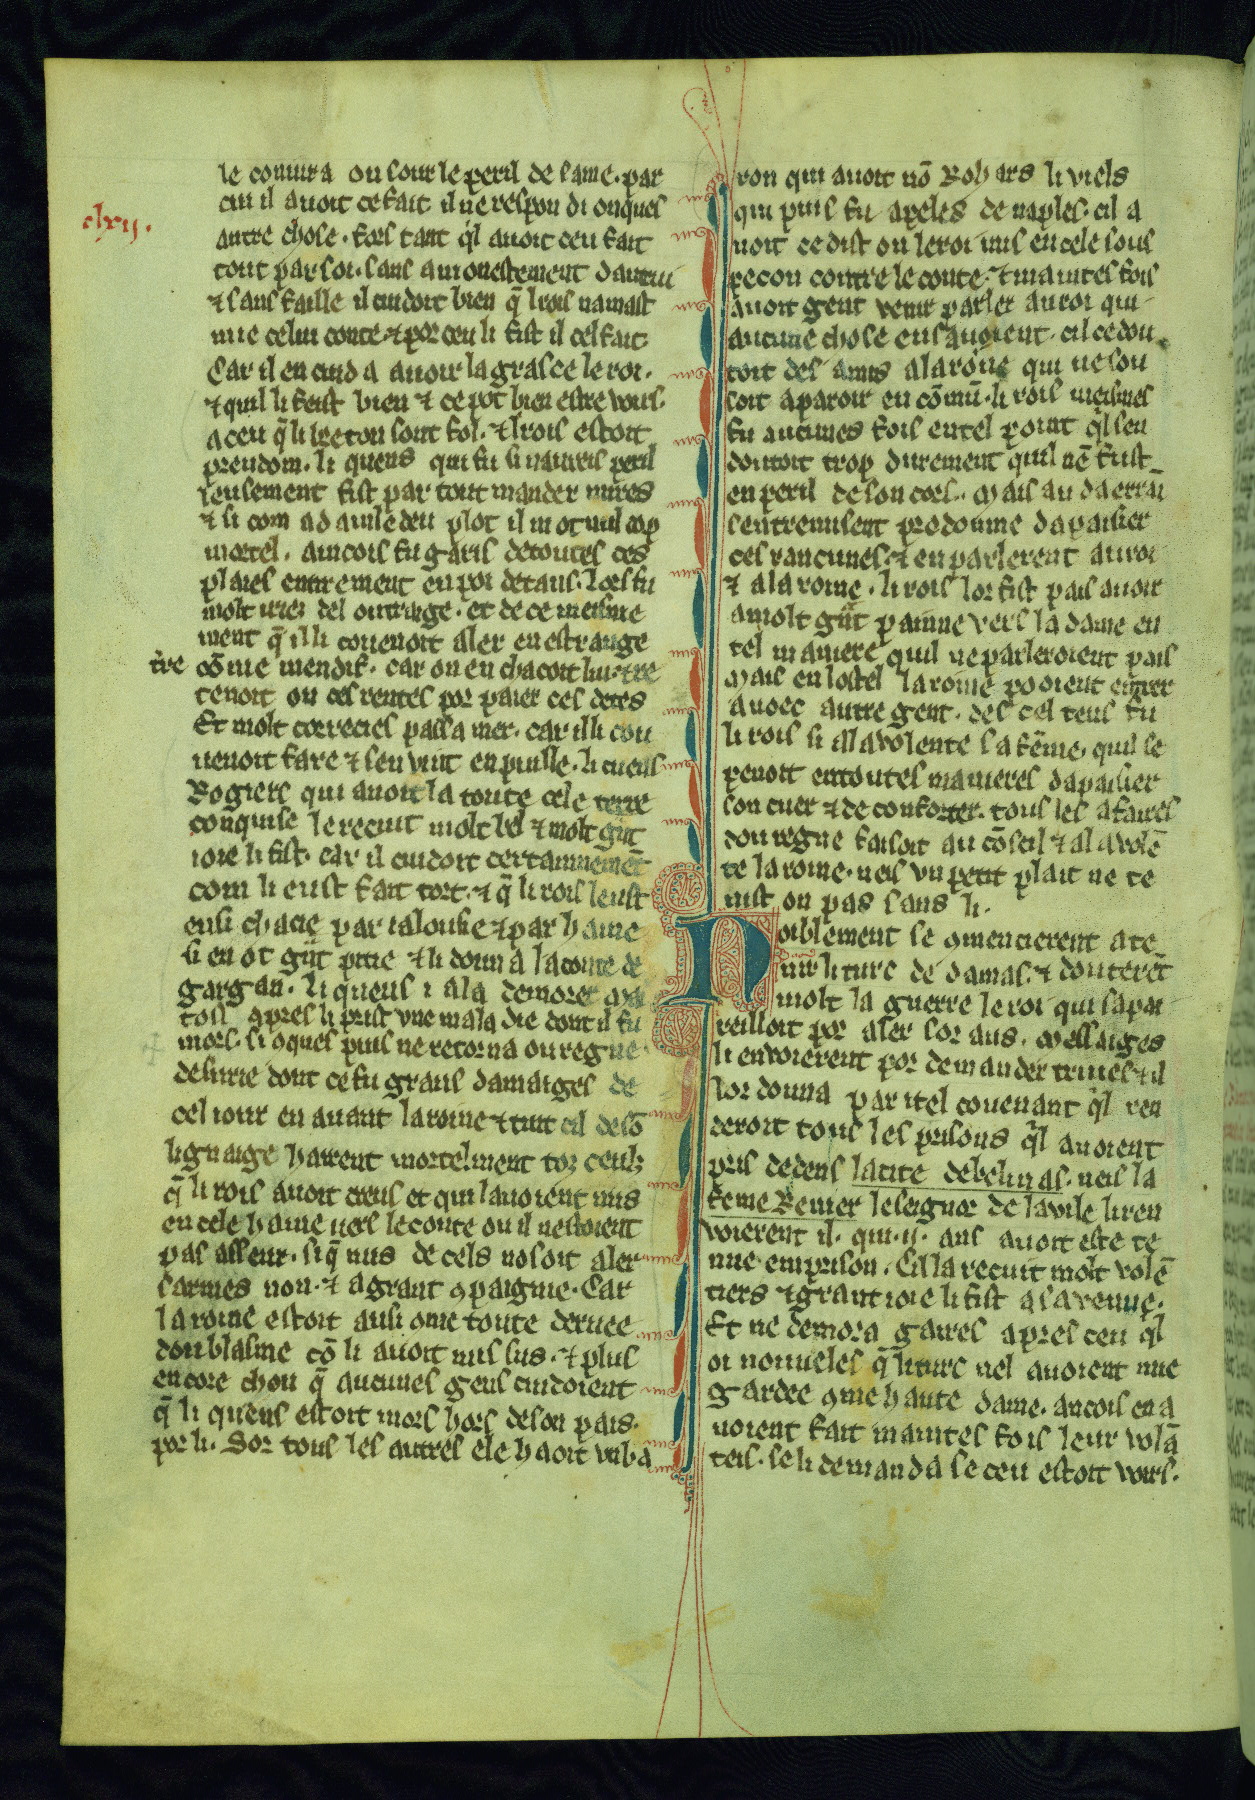 clxij.
le coniura ou sour le peril de same. par
cui il auoit ce fait il ne respondi onques
autre chose. fors tant q̃l auoit ceu fait
tout par soi. sans amonestement dautrui
⁊ sans faille il cuidoit bien q̃ li rois namast
mie celui conte ⁊ por ceu li fist il cel fait.
Car il en cuida auoir la grasce le roi.
⁊ quil li feist bien ⁊ ce pot bien estre voirs.
a ceu q̃ li breton sont fol. ⁊ li rois estoit
preudom. li quens qui fu si naureis peril
leusement fist par tout mander mires
⁊ si com ad auile deu plot il ni ot nul cop
mortel. aincois fu garis de toutes ces
plaies entierement en poi de tans. lors fu
molt iriez del outraige. et de ce meisme
ment q̃ il li couenoit aler en estrange
tr̃e cõme mendif. car on en chacoit lui. tre
tenoit on ces rentes por paier ces detes
Et molt correcies passa mer. car il li cou
uenoit fare ⁊ sen vint en puille. li cuens
Rogiers qui auoit la toute cele terre
conquise le recuit molt bel ⁊ molt gñt
ioie li fist. car il cuidoit certainnemēt
com li eust fait tort. ⁊ q̃ li rois leust
ensi chacie par ialousie ⁊ par haine
si en ot gñt pitie ⁊ li donna la conte de
gargan. li queus i ala demorer
tost apres li prist vne maladie dont il fu
mors. si oques puis ne retorna ou regne
de surie dont ce fu grans damaiges de
cel iour en auant la roine ⁊ tuit cil de sõ
lignaige hairent mortelment toz ceulz
q̃ li rois auoit creus et qui lauoient mis
en cele haine uers le conte ou il nestoient
pas asseur. si q̃ nus de cels nosoit aler
sarmes non. ⁊ a grant 9paignie. Car
la roine estoit ausi 9me toute deruee
dou blasme cõ li auoit mis sus. ⁊ plus
encore chou q̃ aucunes gens cuidoient
q̃ li quens estoit mors hors de son pais
por li. Sor tous les autres ele haoit vn ba
ron qui auoit nõ Robers li viels
qui puis fu apeles de naples. cil a
uoit ce dist on le roi mis en cele sous
pecon contre le conte. ⁊ maintes fois
auoit gent venir parler au roi qui
aucune chose en sauoient. cil ce dou
toit des amis a la roine qui ne sou
soit aparoir en cõmũ. li rois meismes
fu aucunes fois en tel point q̃l sen
doutoit trop durement quil nē fust
en peril de son cors. Mais au daerrai
sentremisent prodomme dapaisier
ces rancunes. ⁊ en parlerent au roi
⁊ a la roine. li rois lor fist pais auoir
a molt gñt painne vers la dame en
tel maniere quil ne parleroient pais
Mais en lostel la roine pooient entrer
auoec autre gent. des cel tens fu
li rois si a la volente sa fēme. quil se
penoit en toutes manieres dapaisier
son cuer ⁊ de conforter. tous les afaires
dou regne faisoit au cõseil ⁊ a la volē
te la roine. neis vn petit plait ne te
nist on pas sans li.
Noiblement se 9mencierent a te
nir li turc de damas. ⁊ douterēt
molt la guerre le roi qui sapar
reilloit por aler sor aus. Messaiges
li enuoierent por demander triues ⁊ il
lor donna par itel couenant q̃l ren
deroit tous les prisons q̃l auoient
pris dedens la cite de belinas. neis la
feme Renier le seignor de la vile li ren
voierent il. qui .ij. ans auoit este te
nue en prison. Cil la recuit molt volē
tiers ⁊ grant ioie li fist a sa venue.
Et ne demora gaires apres ceu q̃l
oi nouueles q̃ li turc nel auoient mie
gardee 9me haute dame. ancois en a
uoient fait maintes fois leur volã
teis. se li demanda se ceu estoit voirs.